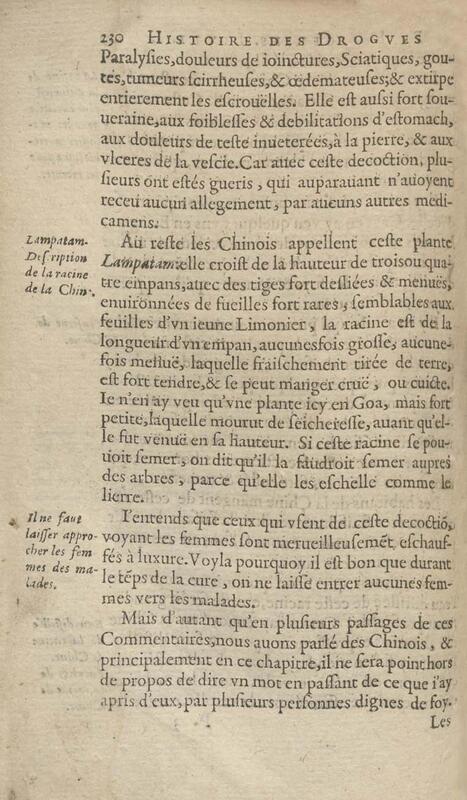 230 HISTOIRE DES DROGVES
Paralyſies,douleurs de ioinctures,Sciatiques, gou-
tes,tumeurs ſcirrheuſes,& œdemateuſes;& extirpe
entierement les eſcrouëlles. Elle eſt auſsi fort ſou-
ueraine,aux foibleſſes & debilitations d'eſtomach,
aux douleurs de teſte inueterées,à la pierre, & aux
vlceres de la veſcie.Car auec ceſte decoction, plu-
ſieurs ont eſtés gueris , qui auparauant n'auoyent
receu aucun allegement , par aucuns autres medi-
camens.
Lampatam.
Deſcription
de la racine
de la Chine.
Au reſte les Chinois appellent ceſte plante
Lampatam:elle croiſt de la hauteur de trois ou qua-
tre empans,auec des tiges fort desliées & menuës,
enuironnées de fueilles fort rares , ſemblables aux
feuilles d'vn ieune Limonier , la racine eſt de la
longueur d'vn empan, aucunesfois groſſe, aucune-
fois menuë, laquelle fraiſchement tirée de terre,
eſt fort tendre,& ſe peut manger cruë , ou cuicte.
Ie n'en ay veu qu'vne plante icy en Goa, mais fort
petite,laquelle mourut de ſeichereſſe, auant qu'el-
le fut venuë en ſa hauteur. Si ceſte racine ſe pou-
uoit ſemer , on dit qu'il la faudroit ſemer aupres
des arbres , parce qu'elle les eſchelle comme le
lierre.
Il ne faut
laiſſer appro-
cher les fem
mes des ma-
lades.
I'entends que ceux qui vſent de ceſte decoctiõ,
voyant les femmes ſont merueilleuſemẽt eſchauf-
fés à luxure. Voyla pourquoy il eſt bon que durant
le tẽps de la cure , on ne laiſſe entrer aucunes fem-
mes vers les malades.
Mais d'autant qu'en pluſieurs paſſages de ces
Commentaires,nous auons parlé des Chinois , &
principalement en ce chapitre,il ne ſera point hors
de propos de dire vn mot en paſſant de ce que i'ay
apris d'eux,par pluſieurs perſonnes dignes de foy.
Les